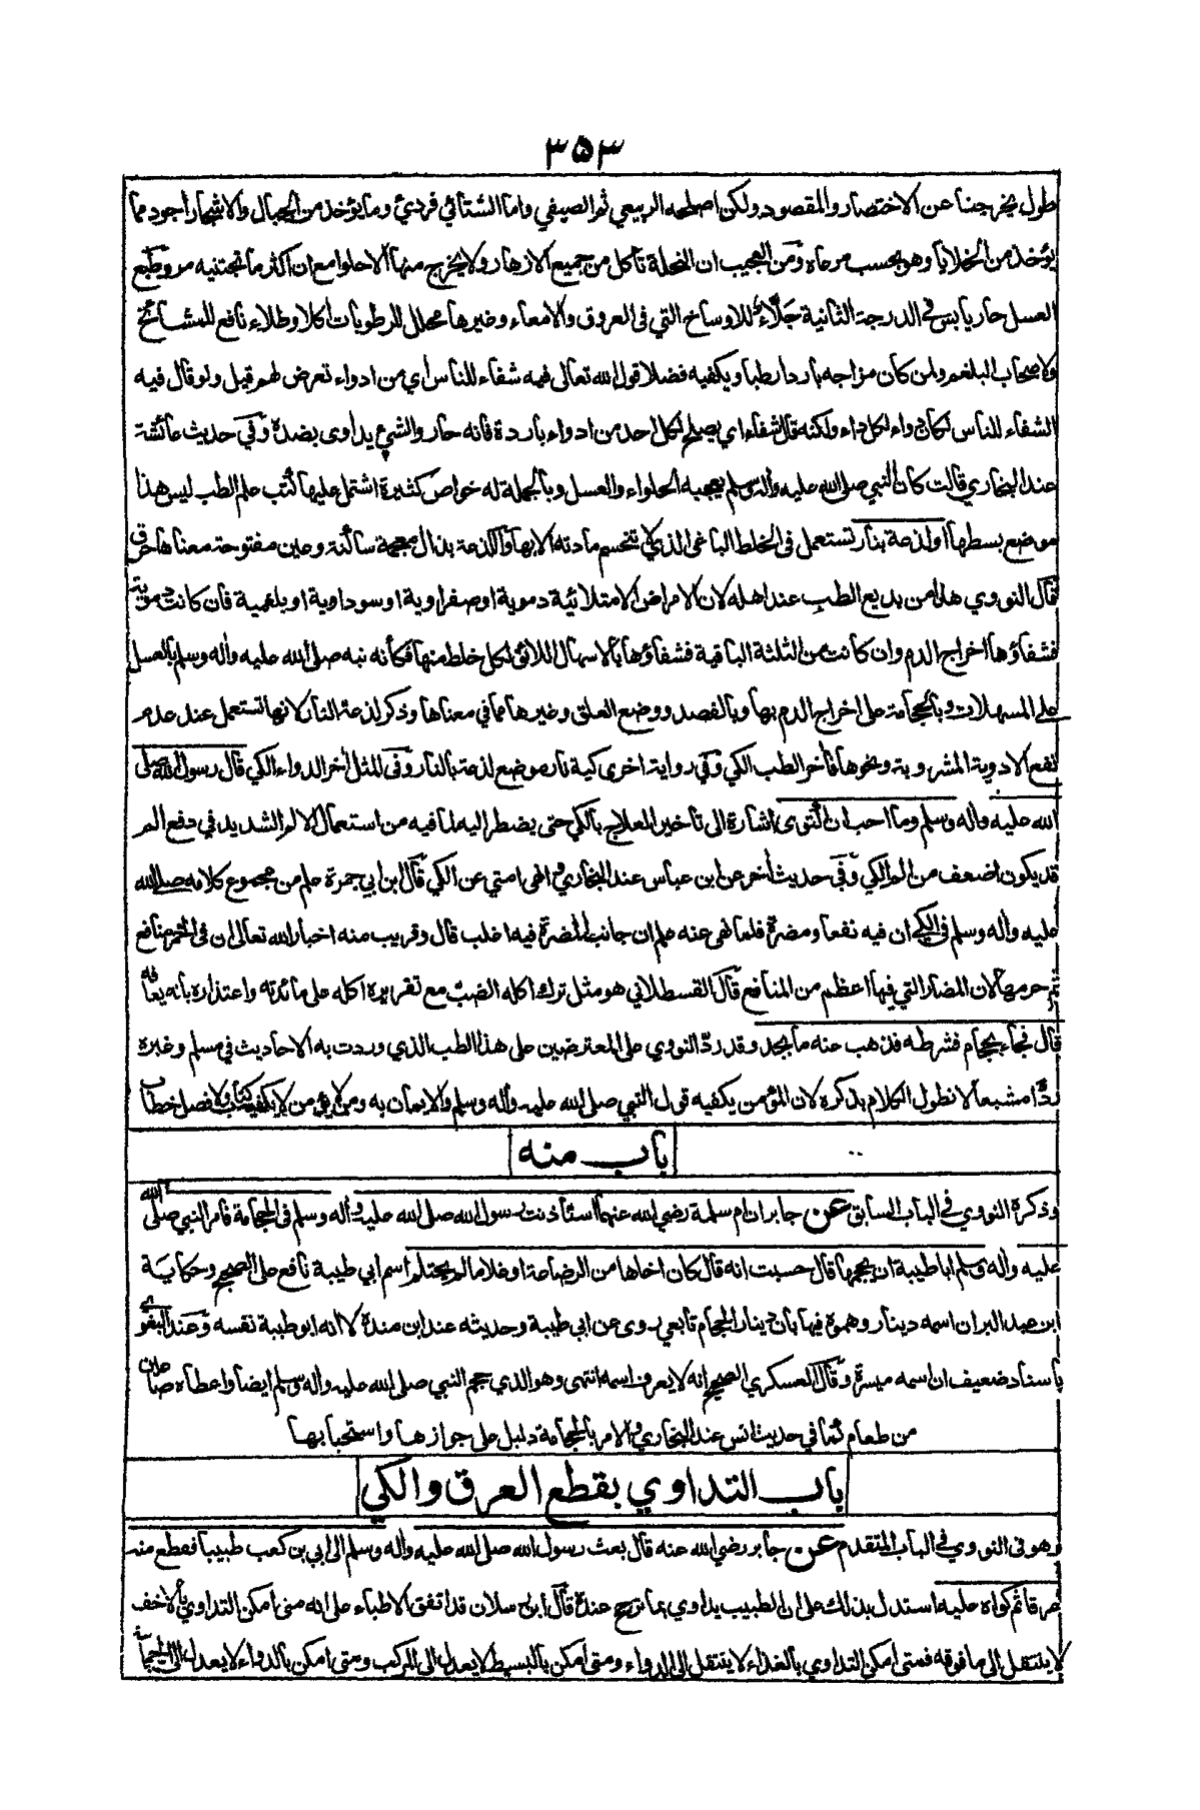 ٣٥٣
طول يخرجنا عن الاختصار والمقصود ولكن اصلحه الربيعي ثم الصيفي واما الشتائي فردئ وما يؤخذ من الجبال والاشجار اجود مما
يؤخذ من الخلايا وهو بحسب مرعاه ومن العجيب ان النحلة تاكل من جميع الازهار ولا يخرج منها الا حلوا مع ان اكثر ما تجتنيه مر وطبع
العسل حار يابس في الدرجة الثانية جلاء للاوساخ التي فى العروق والامعاء وغيرها محلل للرطوبات اكلا وطلاء نافع للمشائخ
ولاصحاب البلغم ولمن كان مزاجه باردا رطبا ويكفيه فضلا قول الله تعالى فيه شفاء للناس اي من ادواء تعرض لهم قيل ولو قال فيه
الشفاء للناس لكان دواء لكل داء ولكنه قال شفاء اي يصلح لكل احد من ادواء باردة فانه حار والشئ يداوى بضده وفي حديث عائشة
عند البخاري قالت كان النبي صلى الله عليه وآله وسلم يعجبه الحلواء والعسل وبالجملة له خواص كثيرة اشتمل عليها كتب علم الطب ليس هذا
موضع بسطها او لذعة بنار تستعمل فى الخلط الباغى الذي لا تنحسم مادته الا بها واللذعة بذال معجمة ساكنة وعين مفتوحة معناها حرق
قال النووي هذا من بديع الطب عند اهله لان الامراض الامتلائية دموية او صفراوية او سوداوية او بلغمية فان كانت دموية
فشفاؤها اخراج الدم وان كانت من الثلثة الباقية فشفاؤها بالاسهال اللائق لكل خلط منها فكأنه نبه صلى الله عليه وآله وسلم بالعسل
على المسهلات وبالحجامة على اخراج الدم بها وبالفصد ووضع العلق وغيرها مما في معناها وذكر لذعة النار لانها تستعمل عند عدم
نفع الادوية المشروبة ونحوها فآخر الطب الكي وفي رواية اخرى كية نار موضع لذعة بالنار وفى المثل آخر الدواء الكي قال رسول الله صلى
الله عليه وآله وسلم وما احب ان اكتوى اشارة الى تاخير العلاج بالكي حتى يضطر اليه لما فيه من استعمال الالم الشديد في دفع الم
قد يكون اضعف من الم الكي وفي حديث آخر عن ابن عباس عند البخاري وانهى امتي عن الكي قال ابن ابي جمرة علم من مجموع كلامه صلى الله
عليه وآله وسلم فى الكي ان فيه نفعا ومضرة فلما نهى عنه علم ان جانب المضرة فيه اغلب قال وقريب منه اخبار الله تعالى ان فى الخمر منافع
ثم حرمها لان المضار التي فيها اعظم من المنافع قال القسطلاني هو مثل ترك اكله الضب مع تقريره اكله على مائدته واعتذاره بانه يعافه
قال فجاء بحجام فشرطه فذهب عنه ما يجد وقد رد النووي على المعترضين على هذا الطب الذي وردت به الاحاديث في مسلم وغيره
ردا مشبعا لا نطول الكلام بذكره لان المؤمن يكفيه قول النبي صلى الله عليه وآله وسلم والايمان به ومن لا يؤمن لا يكفيه كتاب ولا فصل خطاب
باب منه
وذكره النووي في الباب السابق عن جابر ان ام سلمة رضي الله عنها استأذنت رسول الله صلى الله عليه وآله وسلم في الحجامة فامر النبي صلى الله
عليه وآله وسلم ابا طيبة ان يحجمها قال حسبت انه قال كان اخاها من الرضاعة او غلاما لم يحتلم اسم ابي طيبة نافع على الصحيح وحكاية
ابن عبد البر ان اسمه دينار وهموه فيها بان دينار الحجام تابعي روى عن ابي طيبة وحديثه عند ابن مندة لا انه ابو طيبة نفسه وعند البغوي
باسناد ضعيف ان اسمه ميسرة وقال العسكري الصحيح انه لا يعرف اسمه انتهى وهو الذي حجم النبي صلى الله عليه وآله وسلم ايضا واعطاه صاعين
من طعام كما في حديث انس عند البخاري والامر بالحجامة دليل على جوازها واستحبابها
باب التداوي بقطع العرق والكي
وهو فى النووي في الباب المتقدم عن جابر رضي الله عنه قال بعث رسول الله صلى الله عليه وآله وسلم الى ابي بن كعب طبيبا فقطع منه
عرقا ثم كواه عليه استدل بذلك على ان الطبيب يداوي بما ترجح عنده قال ابن رسلان قد اتفق الاطباء على انه متى امكن التداوي بالاخف
لا ينتقل الى ما فوقه فمتى امكن التداوي بالغذاء لا ينتقل الى الدواء ومتى امكن بالبسيط لا يعدل الى المركب ومتى امكن بالدواء لا يعدل الى الحجامة